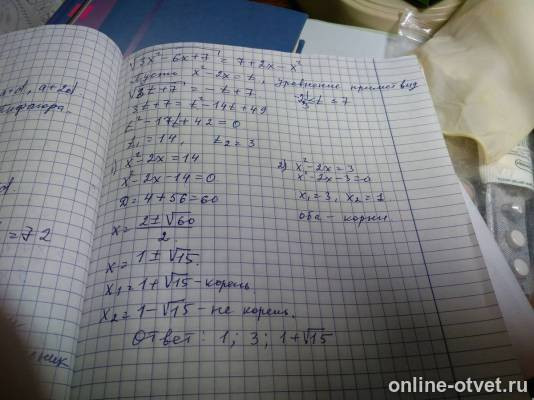 √3x²-6x+7 = 7+2x-x²
Пусть x²-2x=t, Уравнение примет вид
√3t+7 = -t+7
3t+7 = t²-14t+49
-7/3 ≤ t ≤ 7
t²-17t+42=0
t₁=14, t₂=3
1) x²-2x=14
x²-2x-14=0
D=4+56=60
x= 2±√60 / 2
x= 1±√15.
x₁=1+√15 - корень
x₂=1-√15 - не корень.
2) x²-2x=3
x²-2x-3=0
x₁=3, x₂=1
оба - корни
Ответ: 1; 3; 1+√15
a+2d
=72
online-otvet.ru